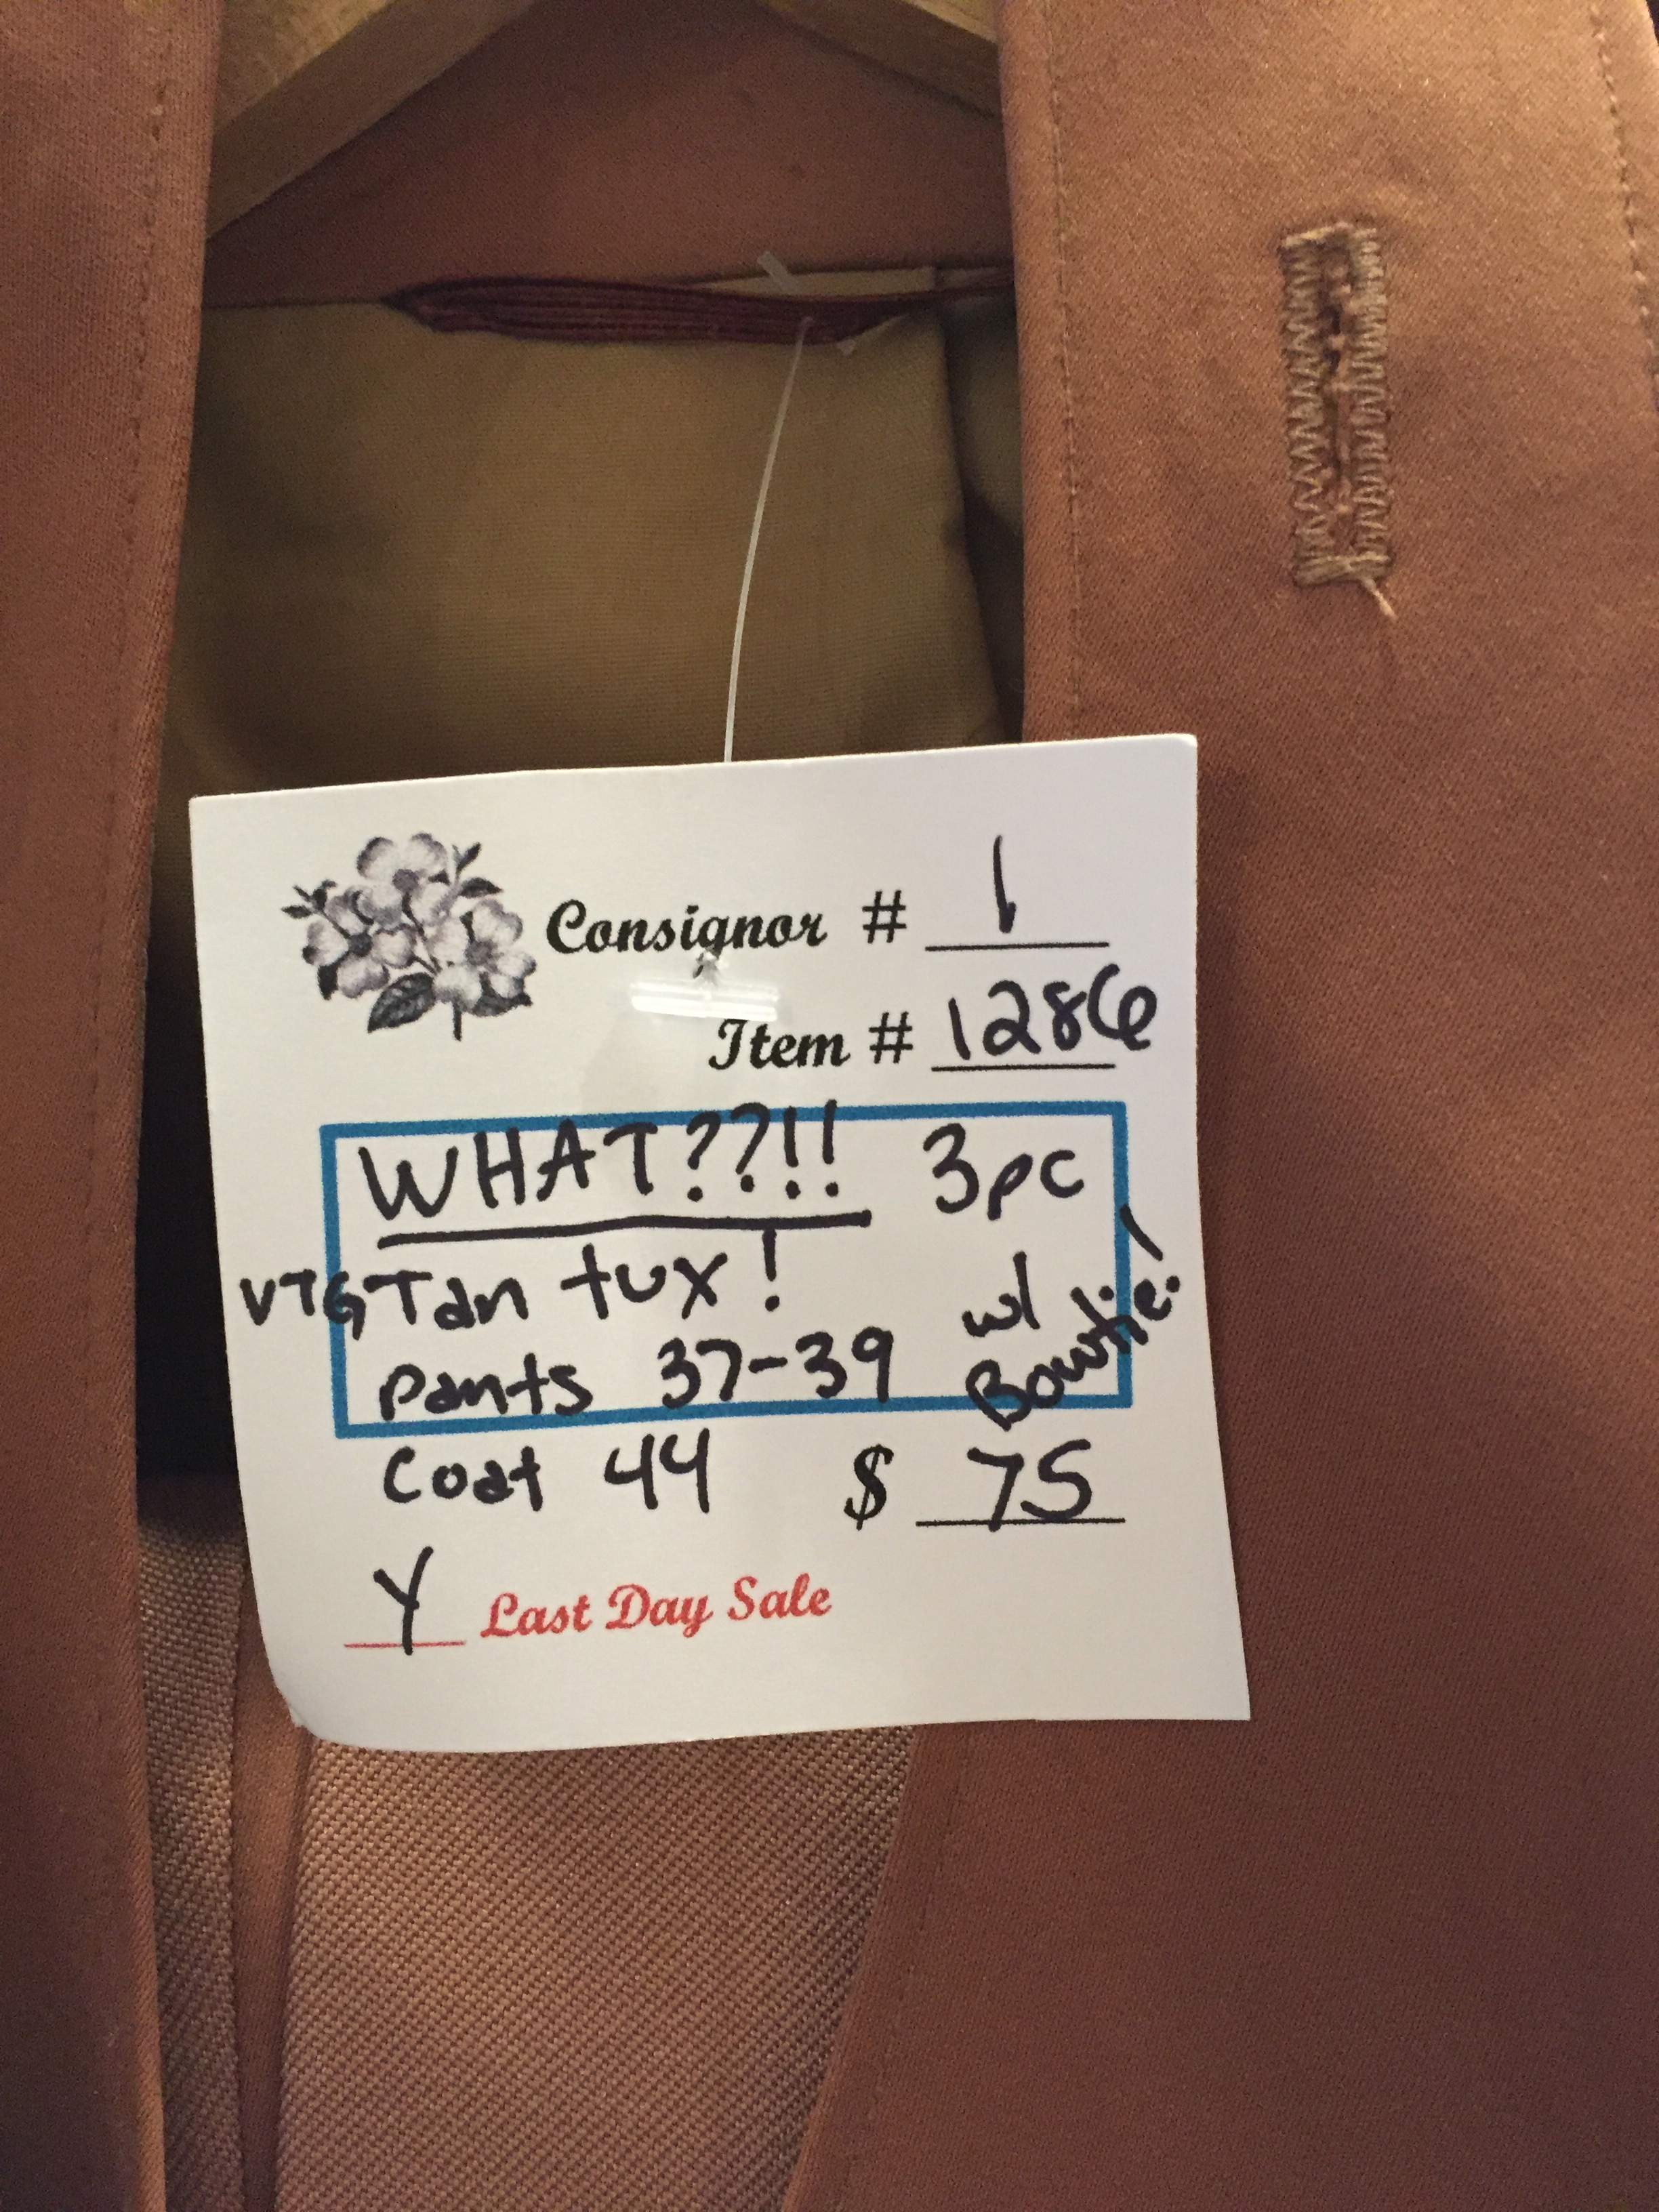 Consignor # 1
Item # 1286
WHAT??!! 3pc
VTG Tan tux! w/ Bowtie!
Pants 37-39
Coat 44 $ 75
Y Last Day Sale